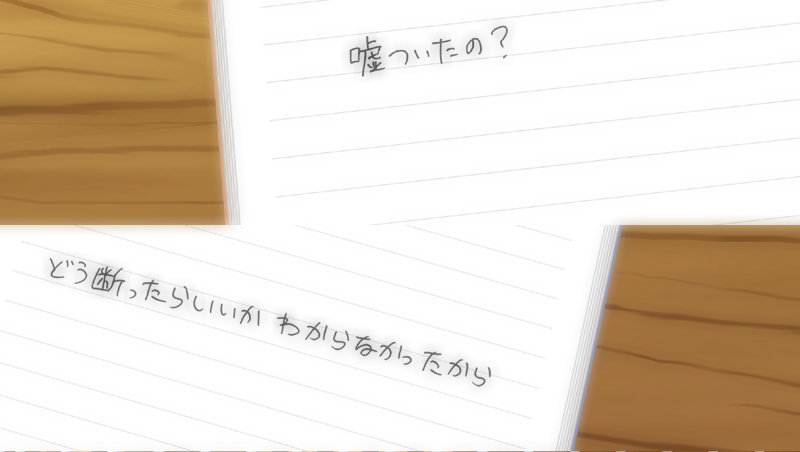 嘘ついたの?
どう断ったらいいか わからなかったから